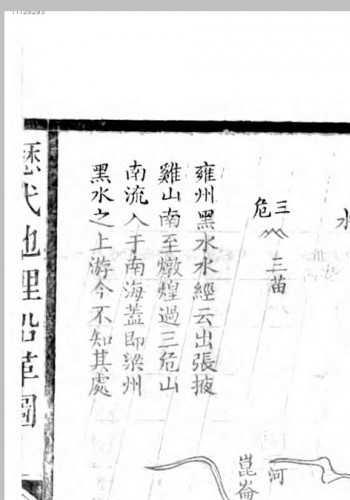 水
三危
三苗
雍州黑水水經云出張掖
雞山南至燉煌過三危山
南流入于南海蓋即梁州
黑水之上游今不知其處
河
崑崙
歷代地理沿革圖